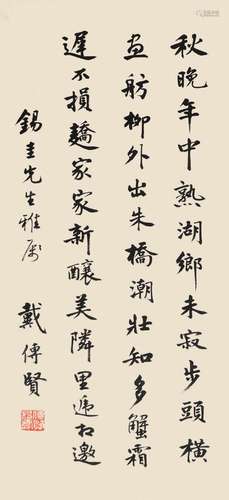 秋晚年中熟湖鄉未寂步頭橫
畫舫柳外出朱橋潮壯知多蟹霜
遲不損蕎家家新釀美隣里遞相邀
錫圭先生雅屬
戴傳賢